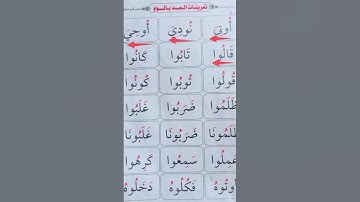 تمرينات المد بالواو
أُوتِيَ نُودِيَ أُوحِيَ
قَالُوا تَابُوا كَانُوا
قُولُوا تُوبُوا كُونُوا
ظَلَمُوا ضَرَبُوا غَلَبُوا
ظَلَمُونَا ضَرَبُونَا غَلَبُونَا
عَمِلُوا سَمِعُوا كَرِهُوا
أُوتُوهُ فَكُلُوهُ دَخَلُوهُ